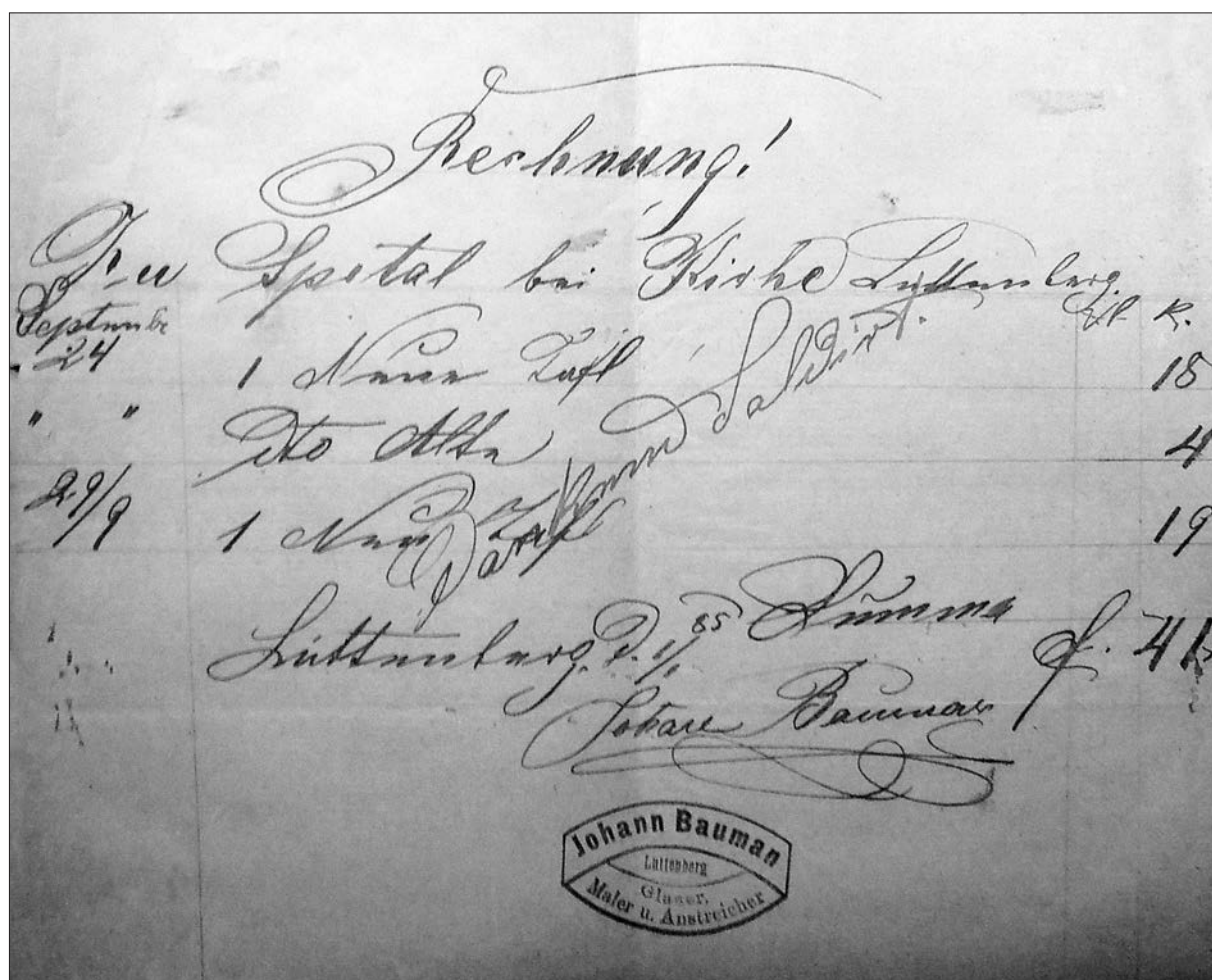 Rechnung!
Spital bei Kirhe Luttenberg.
fl. k.
September
24 1 Neue Tafl 18
" " Dto Alte 4
29/9 1 Neue Tafl 19
Dankend Saldirt.
Luttenberg. d. 1/1 85 Summa f. 41
Johann Bauman
Johann Bauman
Luttenberg
Glaser,
Maler u. Anstreicher